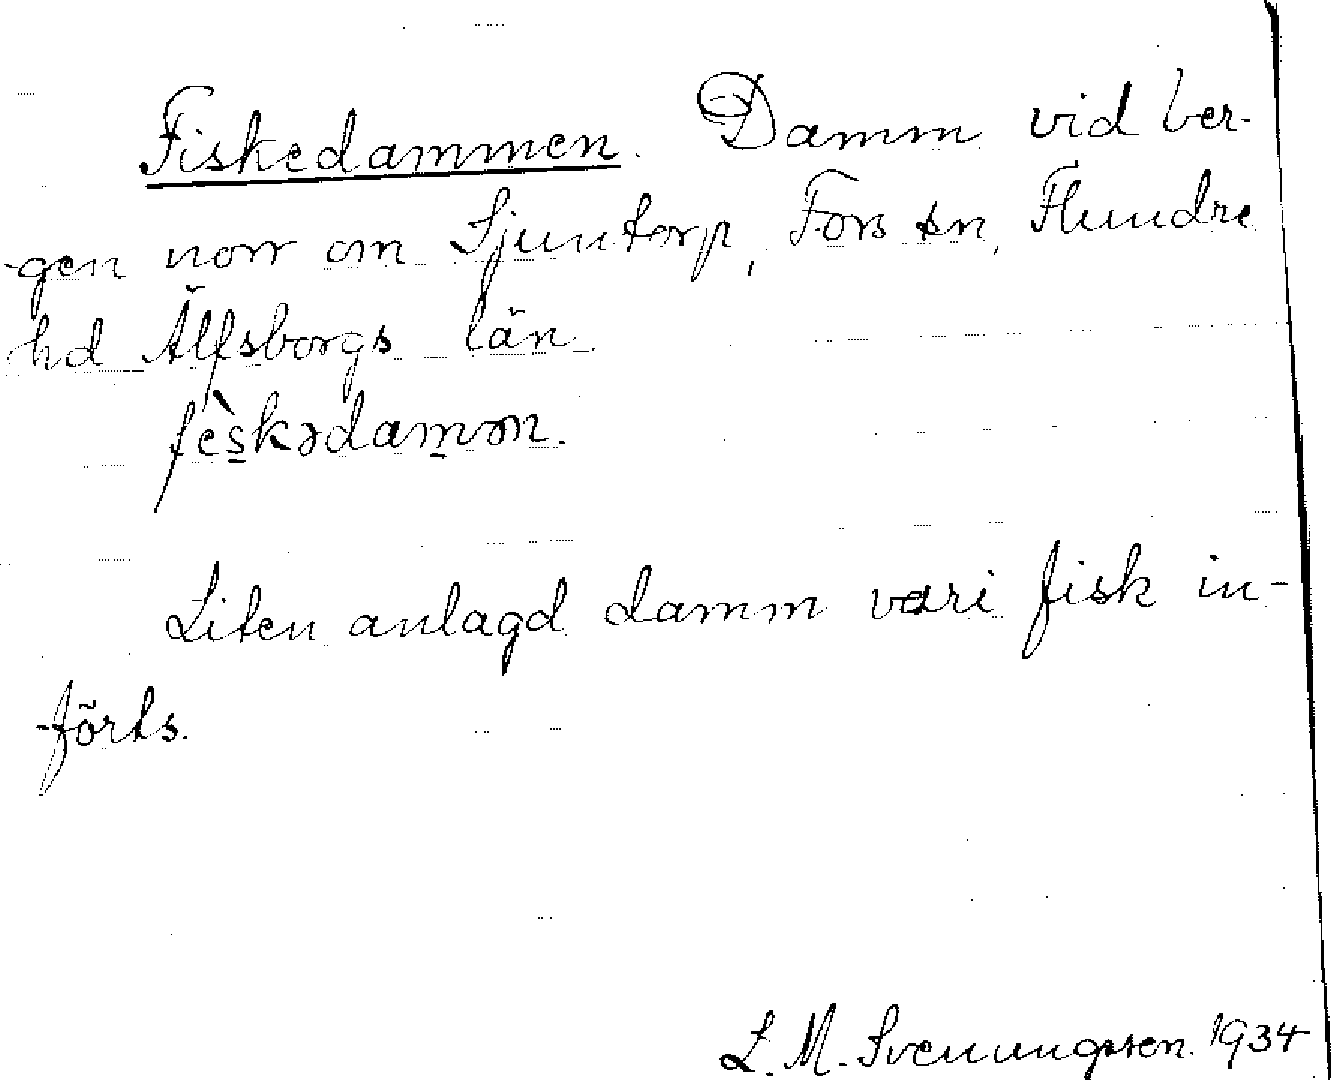 Fiskedammen. Damm vid ber-
-gen norr om Sjuntorp, Fors sn, Flundre
hd Älfsborgs län
fèskədamən.
Liten anlagd damm vari fisk in-
-förts.
L. M. Svenungsson. 1934